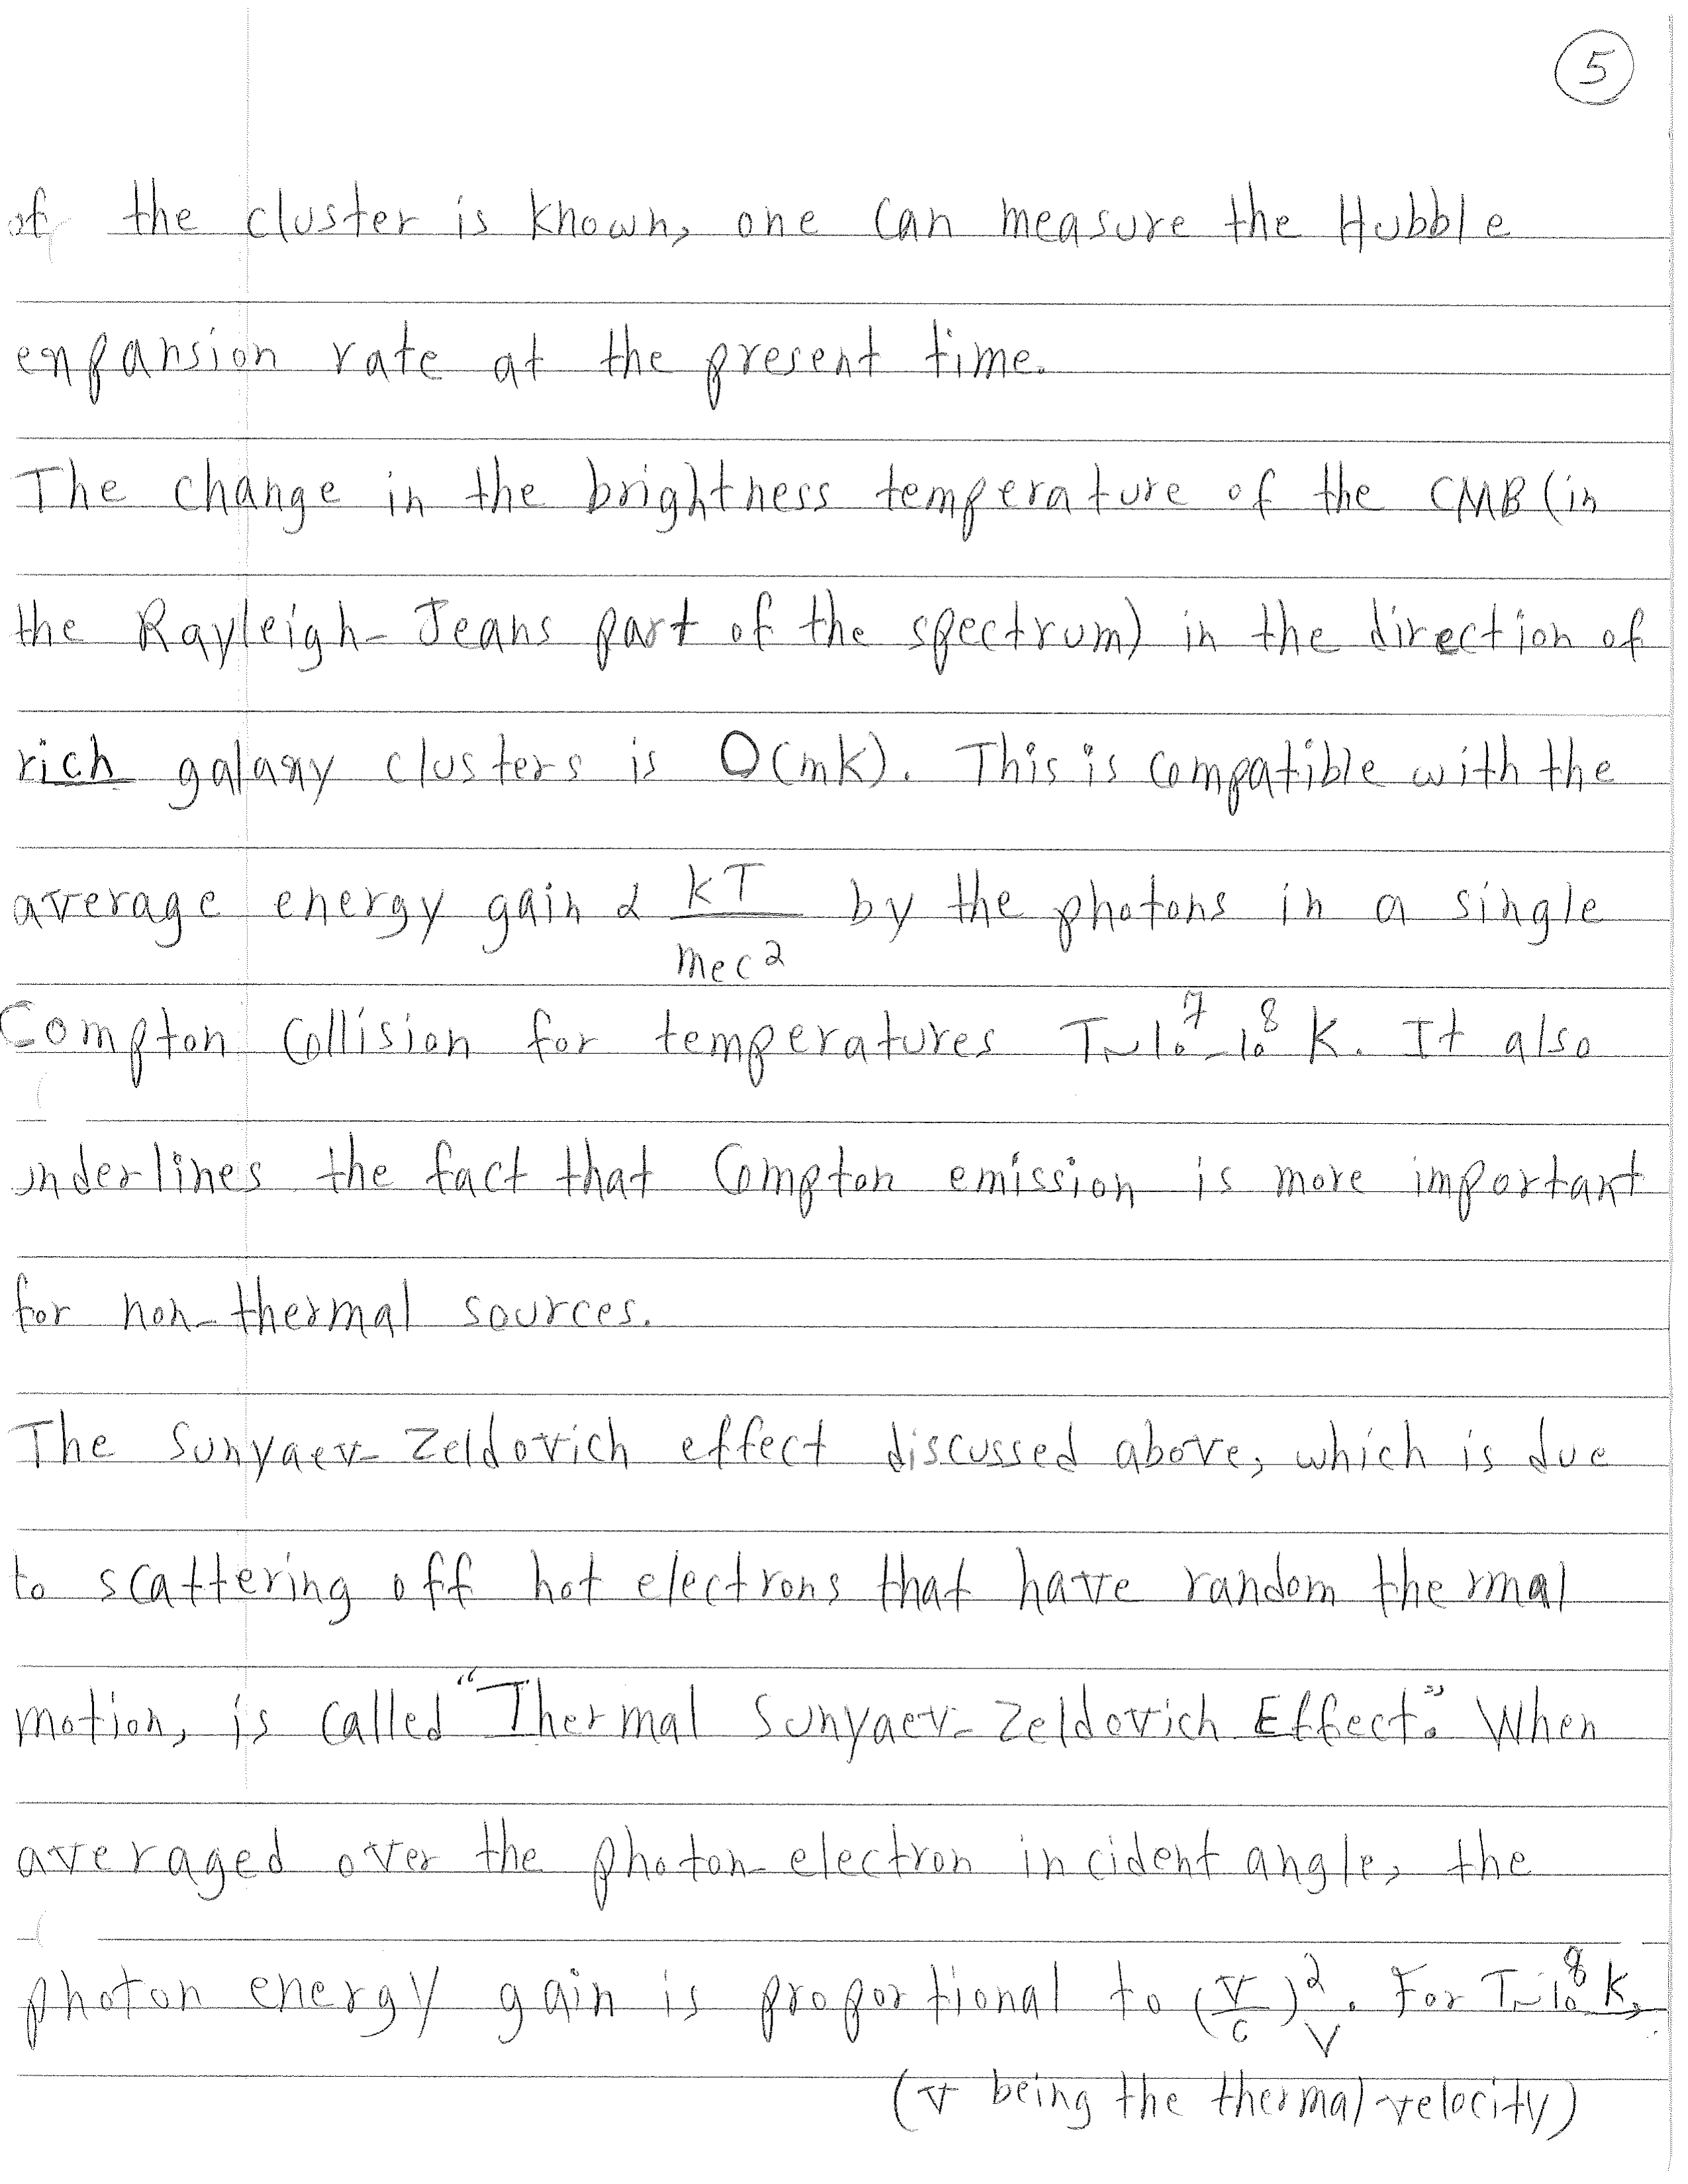 5
of the cluster is known, one can measure the Hubble
expansion rate at the present time.
The change in the brightness temperature of the CMB (in
the Rayleigh-Jeans part of the spectrum) in the direction of
rich galaxy clusters is O(mK). This is compatible with the
average energy gain ∝ kT/mec² by the photons in a single
Compton collision for temperatures T~10⁷-10⁸ K. It also
underlines the fact that Compton emission is more important
for non-thermal sources.
The Sunyaev-Zeldovich effect discussed above, which is due
to scattering off hot electrons that have random thermal
motion, is called "Thermal Sunyaev-Zeldovich Effect". When
averaged over the photon-electron incident angle, the
photon energy gain is proportional to (v/c)². For T~10⁸ K,
(v being the thermal velocity)